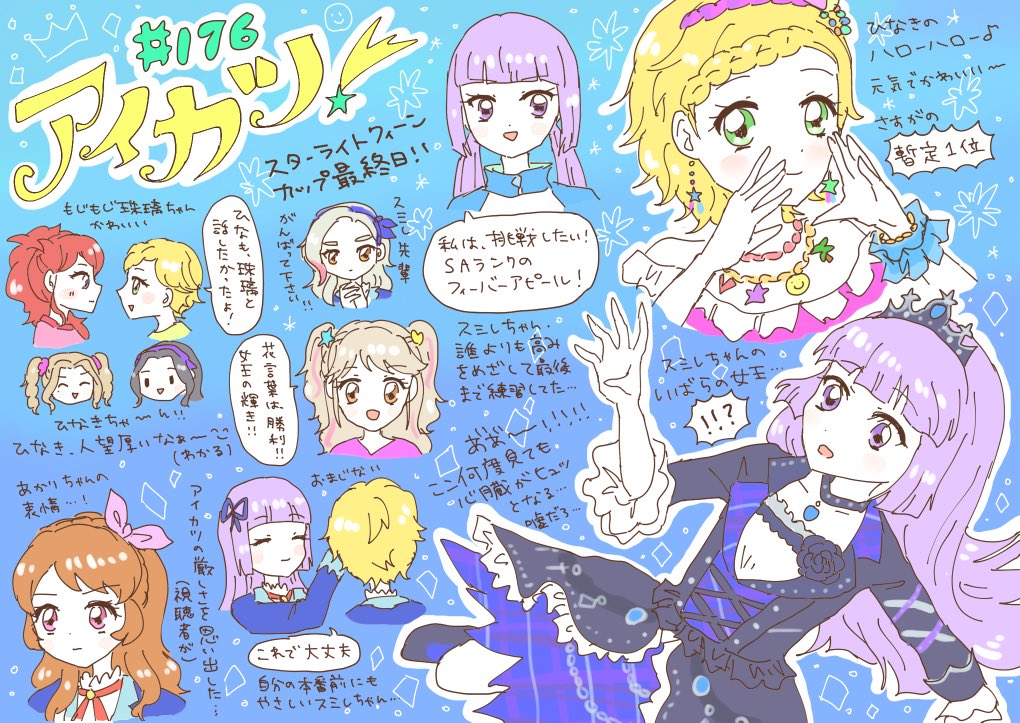 #176
アイカツ!
スターライトクィーン
カップ最終日!!
もじもじ珠璃ちゃん
かわいい
ひなも、珠璃と
話したかったよ!
スミレ先輩
がんばって下さい…!!
私は、挑戦したい!
SAランクの
フィーバーアピール!
ひなきの
ハローハロー♪
元気でかわいい〜
さすがの
暫定1位
ひなきちゃ〜ん!!
ひなき、人望厚いなぁ〜
(わかる)
花言葉は、勝利!!
女王の輝き!!
スミレちゃん・
誰よりも高み
をめざして最後
まで練習してた…
スミレちゃんの
いばらの女王…
!!?
ああー!!!!!
ここ何度見ても
心臓がヒュッ
となる…
嘘だろ…
あかりちゃんの
表情…!
アイカツの厳しさを思い出した…
(視聴者が)
おまじない
これで大丈夫
自分の本番前にも
やさしいスミレちゃん…